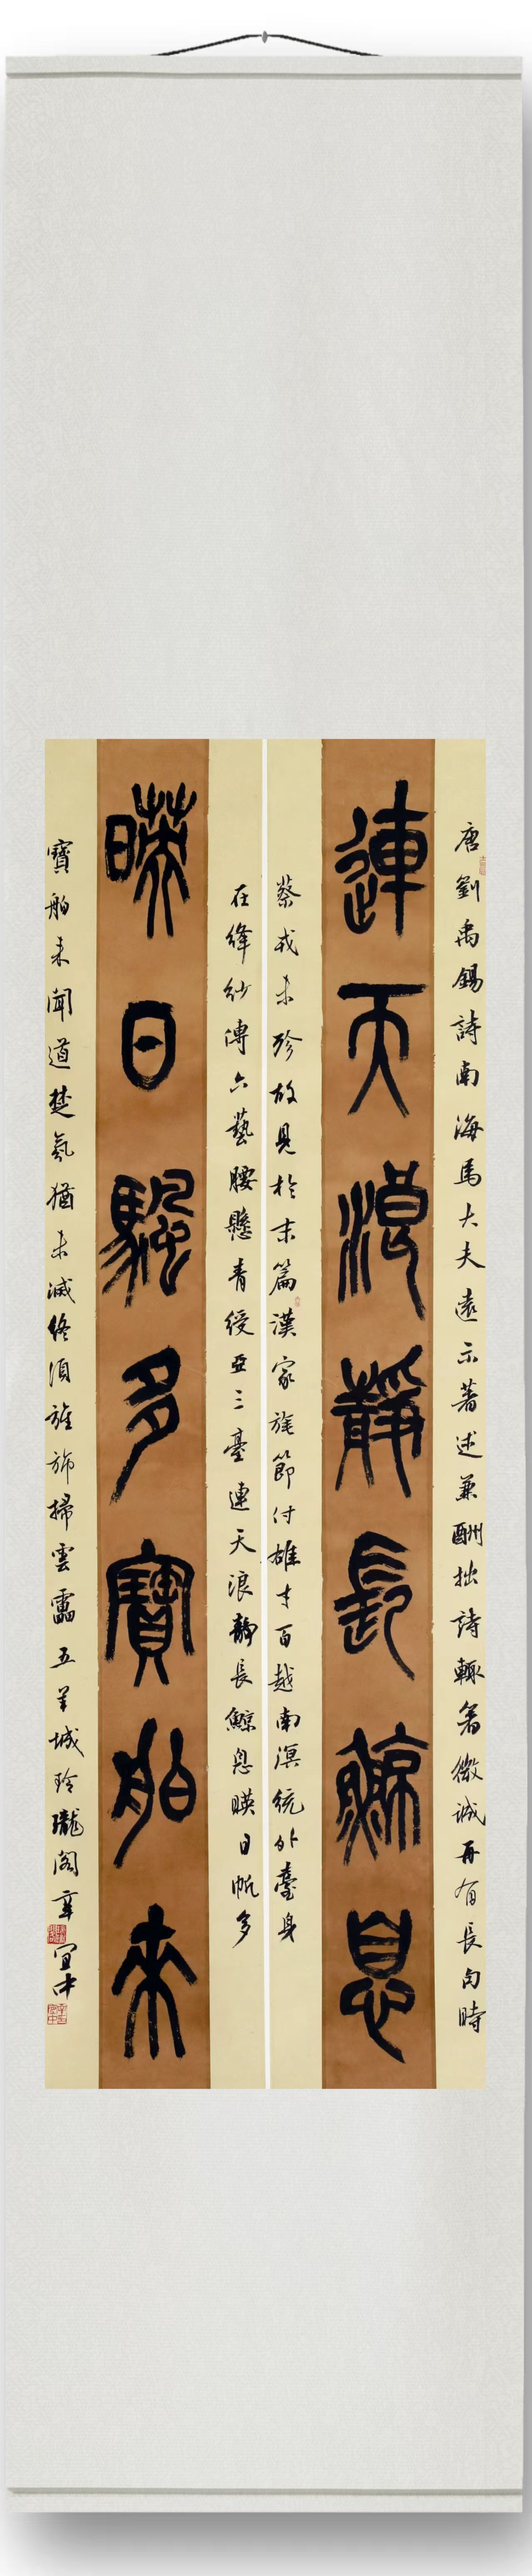 唐劉禹錫詩南海馬大夫遠示著述兼酬拙詩輒著微誠再有長句時
連天浪靜長鯨息
蔡戎未殄故見於末篇漢家旄節付雄才百越南溟統外臺身
在絳紗傳六藝腰懸青綬亞三臺連天浪靜長鯨息暎日帆多
暎日颿多寶舶來
寶舶來聞道楚氛猶未滅終須旌旆掃雲靁五羊城玲瓏閣宜中